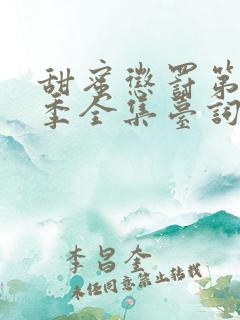 甜蜜懲罰第
季全集臺詞
李昌奎
未经同意禁止转载